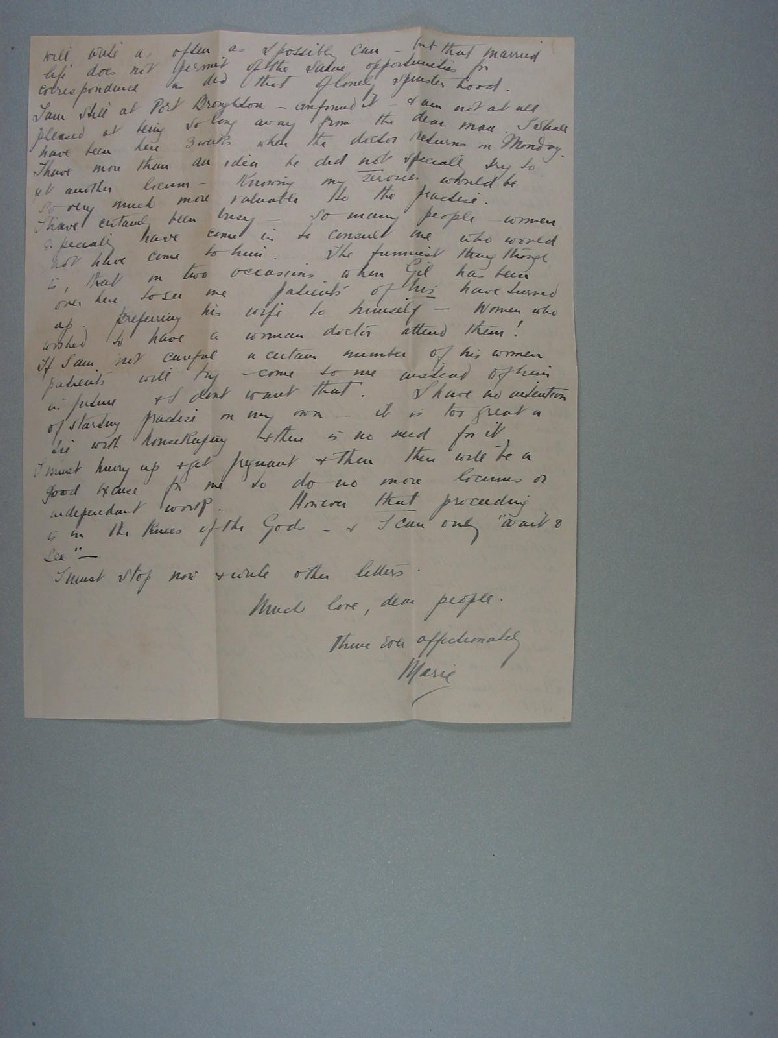 will write as often as I possibly can - but that married
life does not permit of the same opportunities for
correspondence as did that of lonely spinster hood.
I am still at Port Broughton - confound it - & am not at all
pleased at being so long away from the dear man. I shall
have been here 3 weeks when the doctor returns on Monday.
I have more than an idea he did not specially try to
get another locum - Knowing my services would be
so very much more valuable to the practice.
I have certainly been busy - so many people - women
especially have come in to consult me who would
not have come to him. The funniest thing though
is, that on two occasions when Gil has been
over here to see me patients of his have turned
up, preferring his wife to himself - Women who
wished to have a woman doctor attend them!
If I am not careful a certain number of his women
patients will try - come to me instead of him
in future & I dont want that. I have no intention
of starting practice on my own - it is too great a
tie with housekeeping & there is no need for it.
I must hurry up & get pregnant & then there will be a
good excuse for me to do no more locums or
independant work. However that proceeding
is in the Knees of the Gods - & I can only "wait &
see" -
I must stop now & write other letters.
Much love, dear people.
Thine ever affectionately
Marie